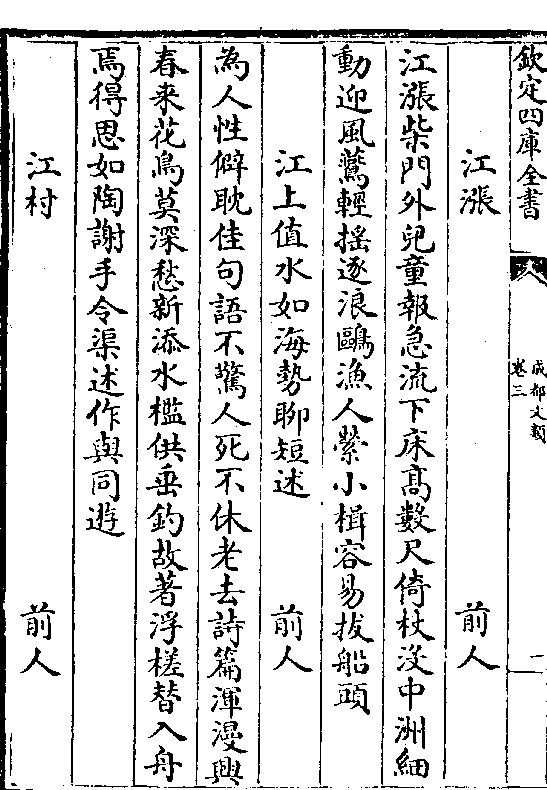 欽定四庫全書
成都文類
卷三
一
江漲
前人
江漲柴門外兒童報急流下床髙數尺倚杖沒中洲細
動迎風鷰輕揺逐浪鷗漁人縈小楫容易拔船頭
江上值水如海勢聊短述
前人
為人性僻耽佳句語不驚人死不休老去詩篇渾漫興
春来花鳥莫深愁新添水檻供垂釣故著浮槎替入舟
焉得思如陶謝手令渠述作與同遊
江村
前人